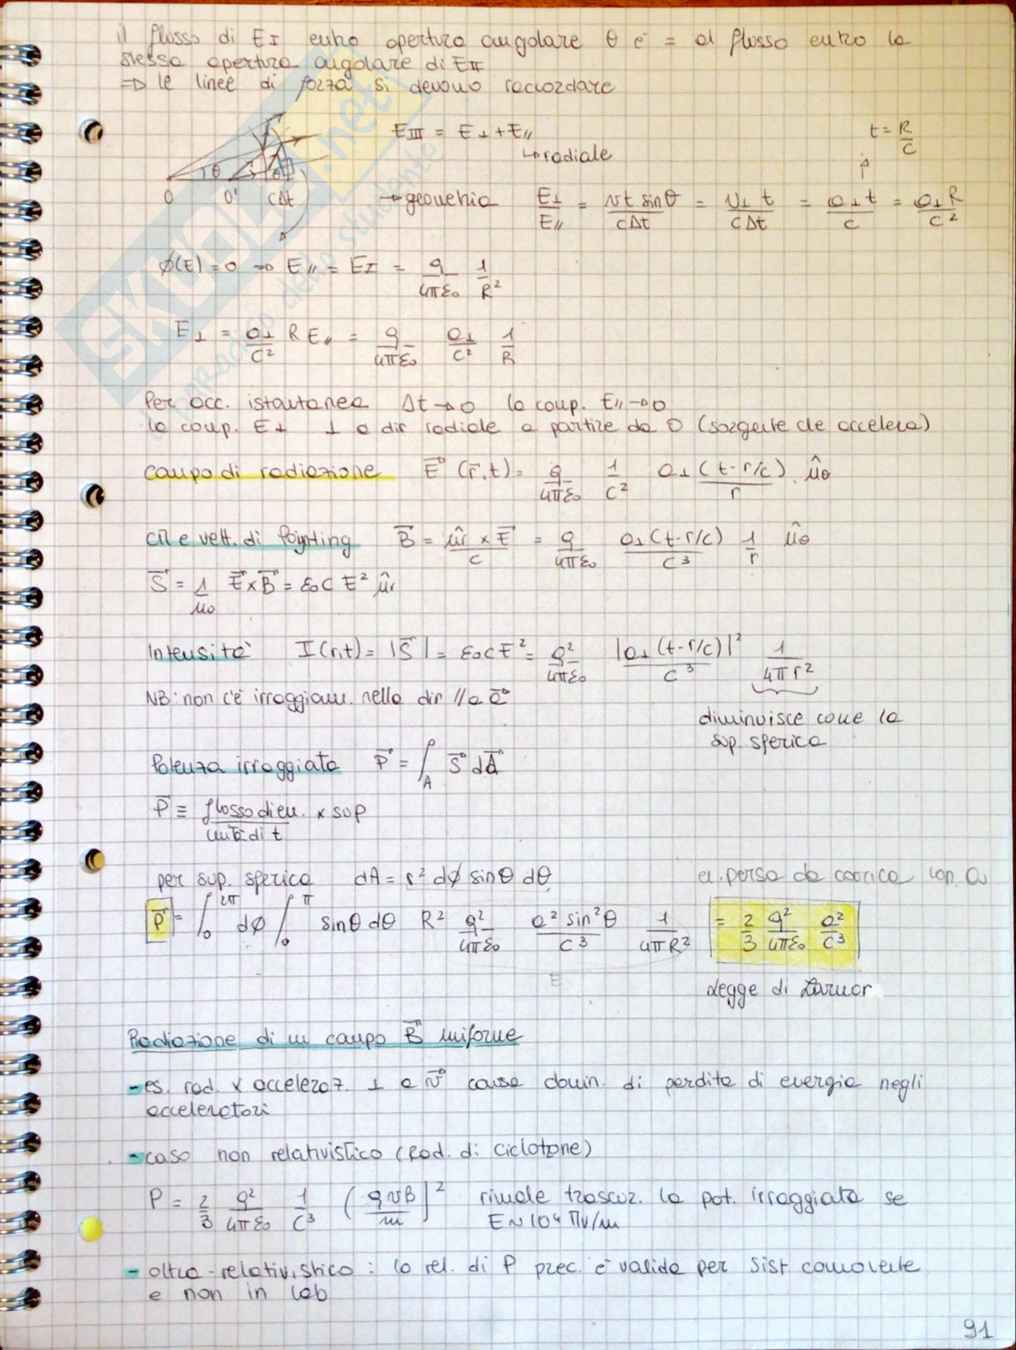 il flusso di E_I entro apertura angolare θ è = al flusso entro la
stessa apertura angolare di E_II
=> le linee di forza si devono raccordare
E_III = E⊥ + E//
↳ radiale
t = R/c
θ
O O' cΔt
→ geometria E⊥/E// = vt sinθ/cΔt = v⊥ t/cΔt = a⊥ t/c = a⊥ R/c²
φ(E) = 0 → E// = E_I = q/4πε₀ 1/R²
E⊥ = a⊥/c² R E// = q/4πε₀ a⊥/c² 1/R
Per acc. istantanea Δt→0 la comp. E//→0
la comp. E⊥ ⊥ a dir radiale a partire da O (sorgente che accelera)
campo di radiazione E⃗(r⃗,t) = q/4πε₀ 1/c² a⊥(t-r/c)/r · ûθ
CM e vett. di Poynting B⃗ = ûr × E⃗/c = q/4πε₀ a⊥(t-r/c)/c³ 1/r ûθ
S⃗ = 1/μ₀ E⃗×B⃗ = ε₀c E² ûr
Intensità I(r,t) = |S⃗| = ε₀cE² = q²/4πε₀ |a⊥(t-r/c)|²/c³ 1/4πr²
NB: non c'è irraggiam. nella dir // a a⃗
diminuisce come la
sup. sferica
Potenza irraggiata P⃗ = ∫_A S⃗ dA⃗
P⃗ ≡ flusso di en./unità di t × sup
per sup. sferica dA = r² dφ sinθ dθ
en. persa da carica con a
P⃗ = ∫₀^2π dφ ∫₀^π sinθ dθ R² q²/4πε₀ a² sin²θ/c³ 1/4πR² = 2/3 q²/4πε₀ a²/c³
Legge di Larmor
Radiazione di un campo B⃗ uniforme
- es. rad. x acceleraz. ⊥ a v⃗ causa domin. di perdita di energia negli
acceleratori
- caso non relativistico (Rad. di ciclotrone)
P = 2/3 q²/4πε₀ 1/c³ (qvB/m)² rimale trascur. la pot. irraggiata se
E~10⁴ MV/m
- oltra-relativistico: la rel. di P prec. è valida per sist comovente
e non in lab
91
SKUOLA.net